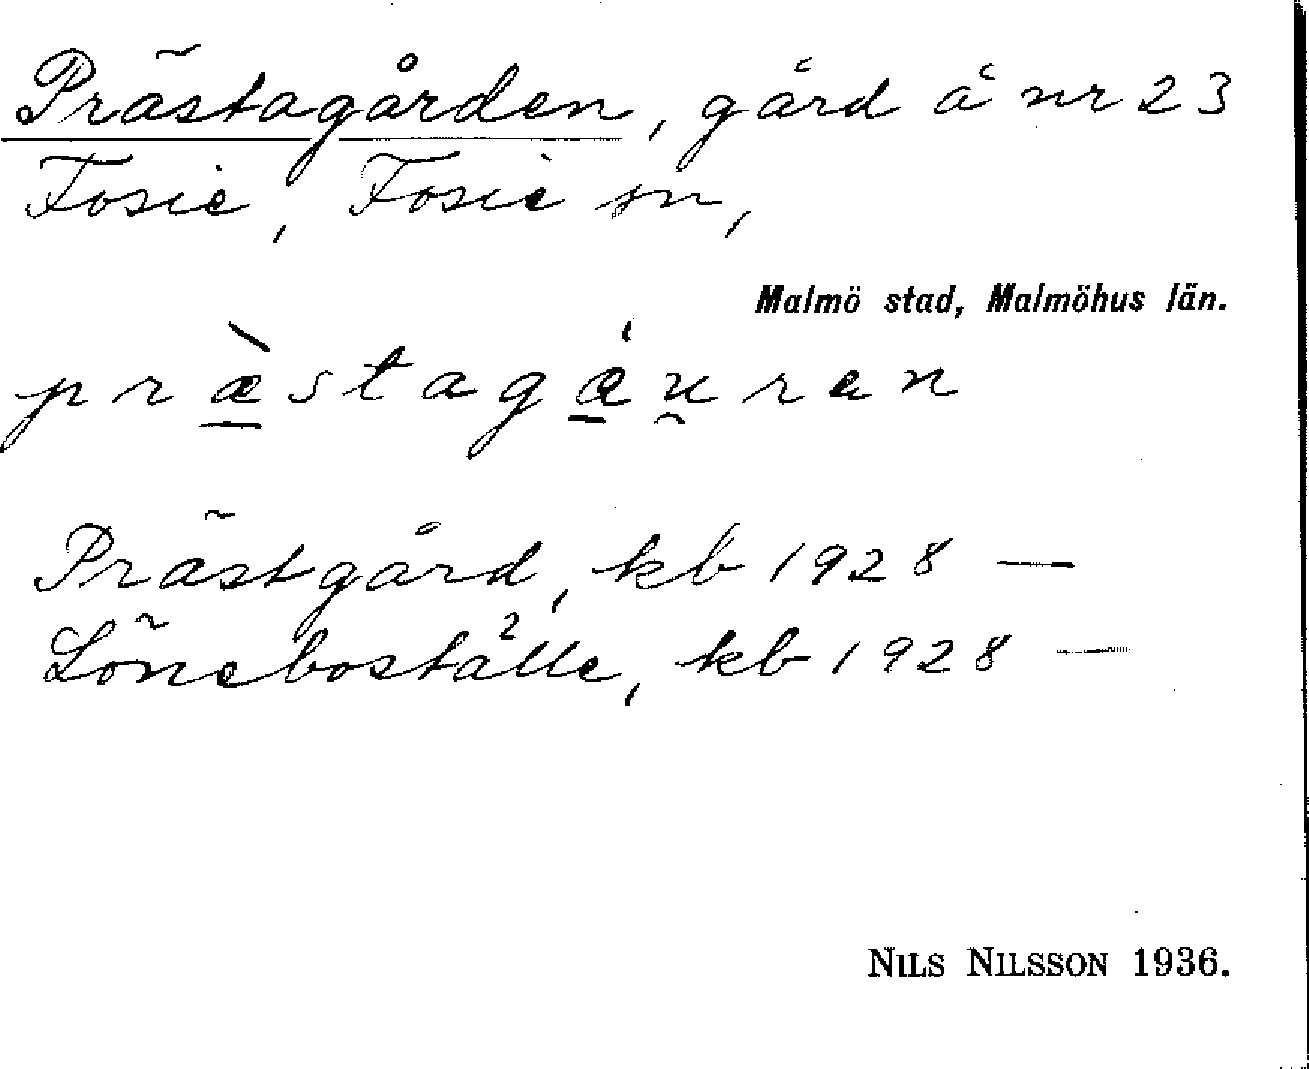 Prästagården, gård å nr 23
Fosie, Fosie sn,
Malmö stad, Malmöhus län.
præ̀stagǽu̯ren
Prästgård, kb 1928 —
Löneboställe, kb 1928 —
NILS NILSSON 1936.